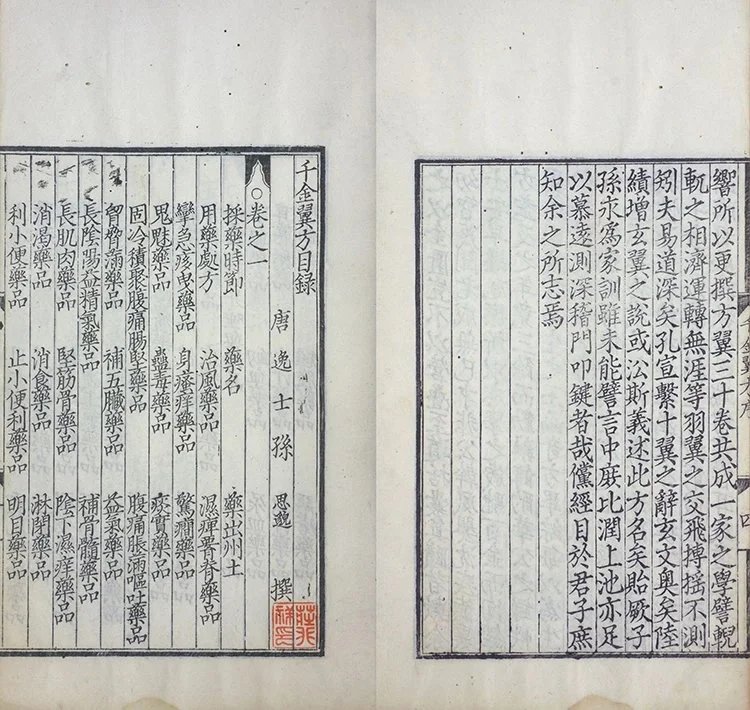 響所以更撰方翼三十卷共成一家之學譬輗
軏之相濟運轉無涯等羽翼之交飛搏搖不測
矧夫易道深矣孔宣繫十翼之辭玄文奧矣陸
績增玄翼之說或沿斯義述此方名矣貽厥子
孫永為家訓雖未能譬言中庶比潤上池亦足
以慕遠測深稽門叩鍵者哉儻經目於君子庶
知余之所志焉
千金翼方目錄
唐逸士孫思邈撰
卷之一
採藥時節 藥名 藥出州土
用藥處方 治風藥品 濕痺腰脊藥品
攣急痿曳藥品 身瘙痒藥品 驚癇藥品
鬼魅藥品 蠱毒藥品 痰實藥品
固冷積聚腹痛腸堅藥品 腹痛脹滿嘔吐藥品
胷脅滿藥品 補五臟藥品 益氣藥品
長陰陽益精氣藥品 補骨髓藥品
長肌肉藥品 堅筋骨藥品 陰下濕痒藥品
消渴藥品 消食藥品 淋閉藥品
利小便藥品 止小便利藥品 明目藥品